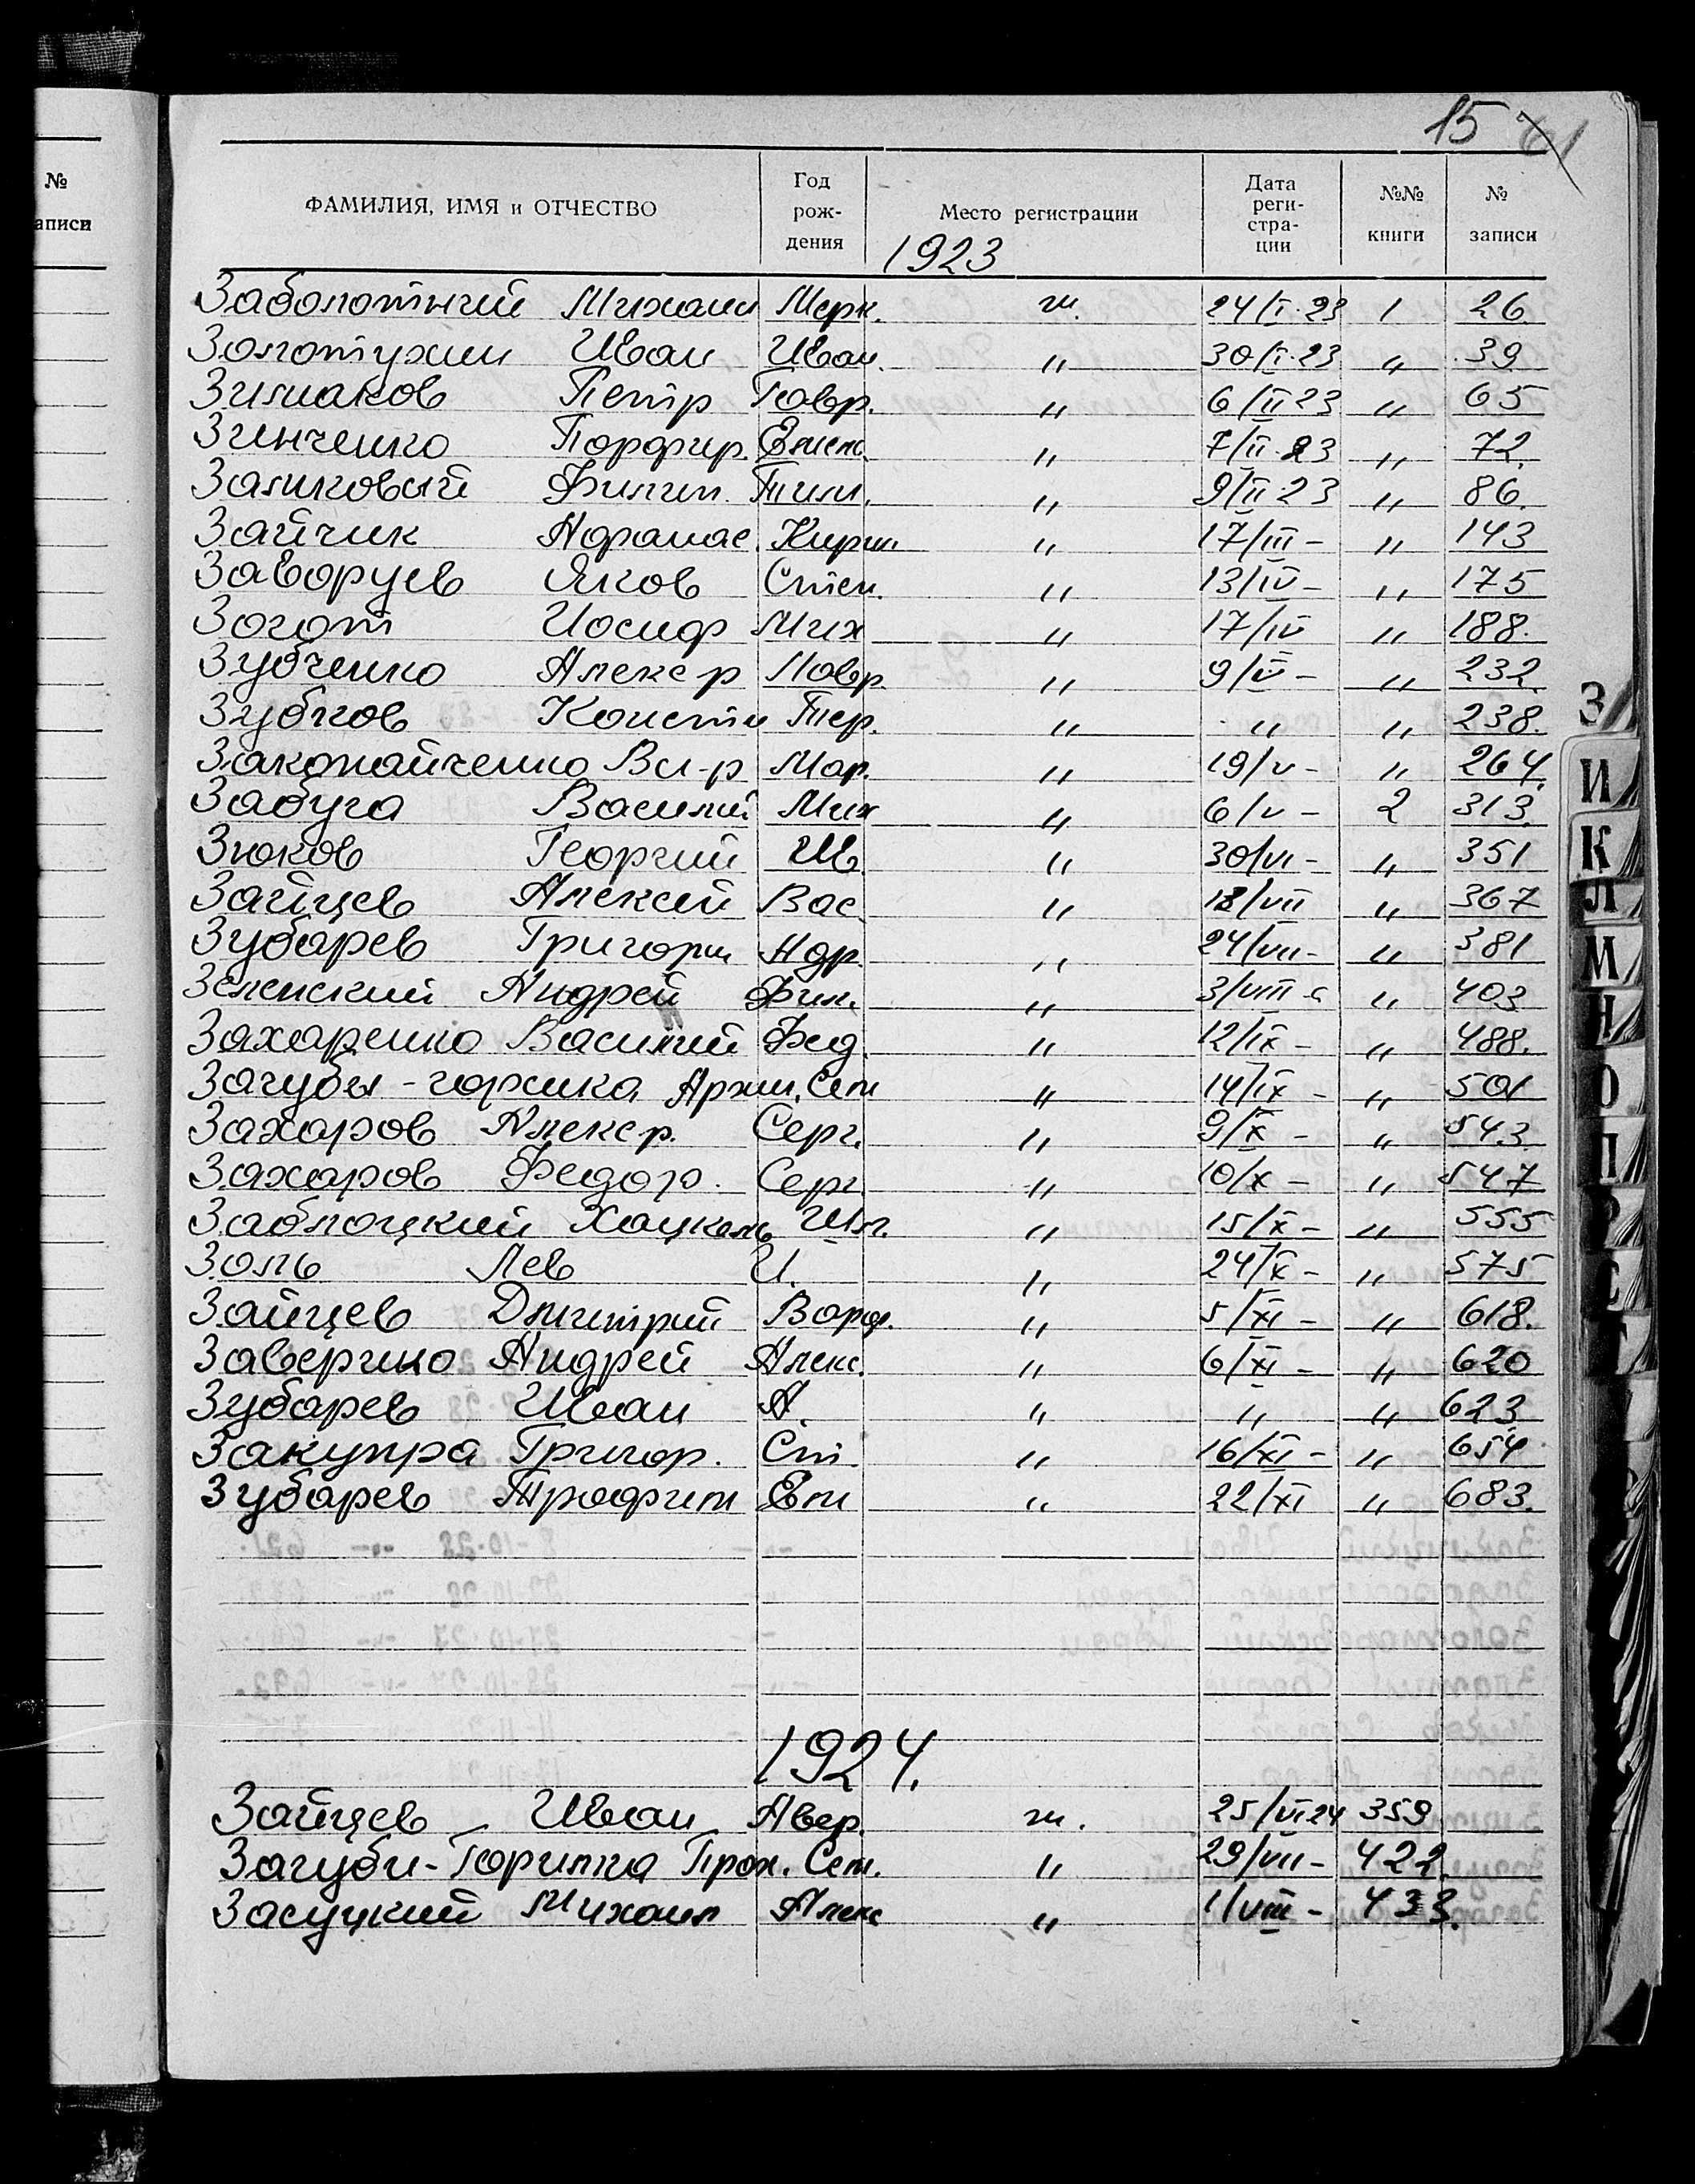 15 61
№
аписи
ФАМИЛИЯ, ИМЯ и ОТЧЕСТВО Год рож- дения Место регистрации Дата реги- стра- ции №№ книги № записи
1923
Заболотний Михаил Мерк. ж. 24/I·23 1 26.
Золотухин Иван Иван. " 30/I·23 " 39
Зимаков Петр Гавр. " 6/II 23 " 65
Зинченко Порфир. Емель. " 7/II·23 " 72.
Заликовый Филип. Тим. " 9/II·23 " 86.
Зайчик Афанас. Кирил " 17/III – " 143
Заворуев Яков Степ. " 13/IV – " 175
Зогот Иосиф Мих " 17/IV " 188.
Зубченко Алекс р Лавр. " 9/V – " 232.
Зубков Констн Тер. " " " 238.
Закопайченко Вл-р Мар. " 19/V – " 264.
Забуга Василий Мих " 6/V – 2 313.
Зюков Георгий Ив " 30/VI – " 351
Зайцев Алексей Вас. " 18/VII " 367
Зубарев Григори Андр. " 24/VII – " 381
Зеленский Андрей Фил. " 3/VIII – " 403
Захаренко Василий Фед. " 12/IX – " 488.
Загубы - горжика Архип. Сем " 14/IX – " 501
Захаров Алекср. Серг. " 9/X – " 543
Захаров Федор. Серг. " 10/X – " 547
Заблоцкий Хацкель Шл. " 15/X – " 555
Золь Лев И. " 24/X – " 575
Зайцев Дмитрий Варф. " 5/XI – " 618.
Заверико Андрей Алекс. " 6/XI – " 620
Зубарев Иван А. " " " 623
Закупра Григор. Ст. " 16/XI – " 654
Зубарев Трофим Ем " 22/XI " 683.
1924.
Зайцев Иван Авер. ж. 25/VI 24 359
Загуби-Горилка Прох. Сем. " 29/VII – 422.
Засуцкий Михаил Алекс " 1/VIII – 433.
З
И
К
Л
М
Н
О
П
Р
С
Т